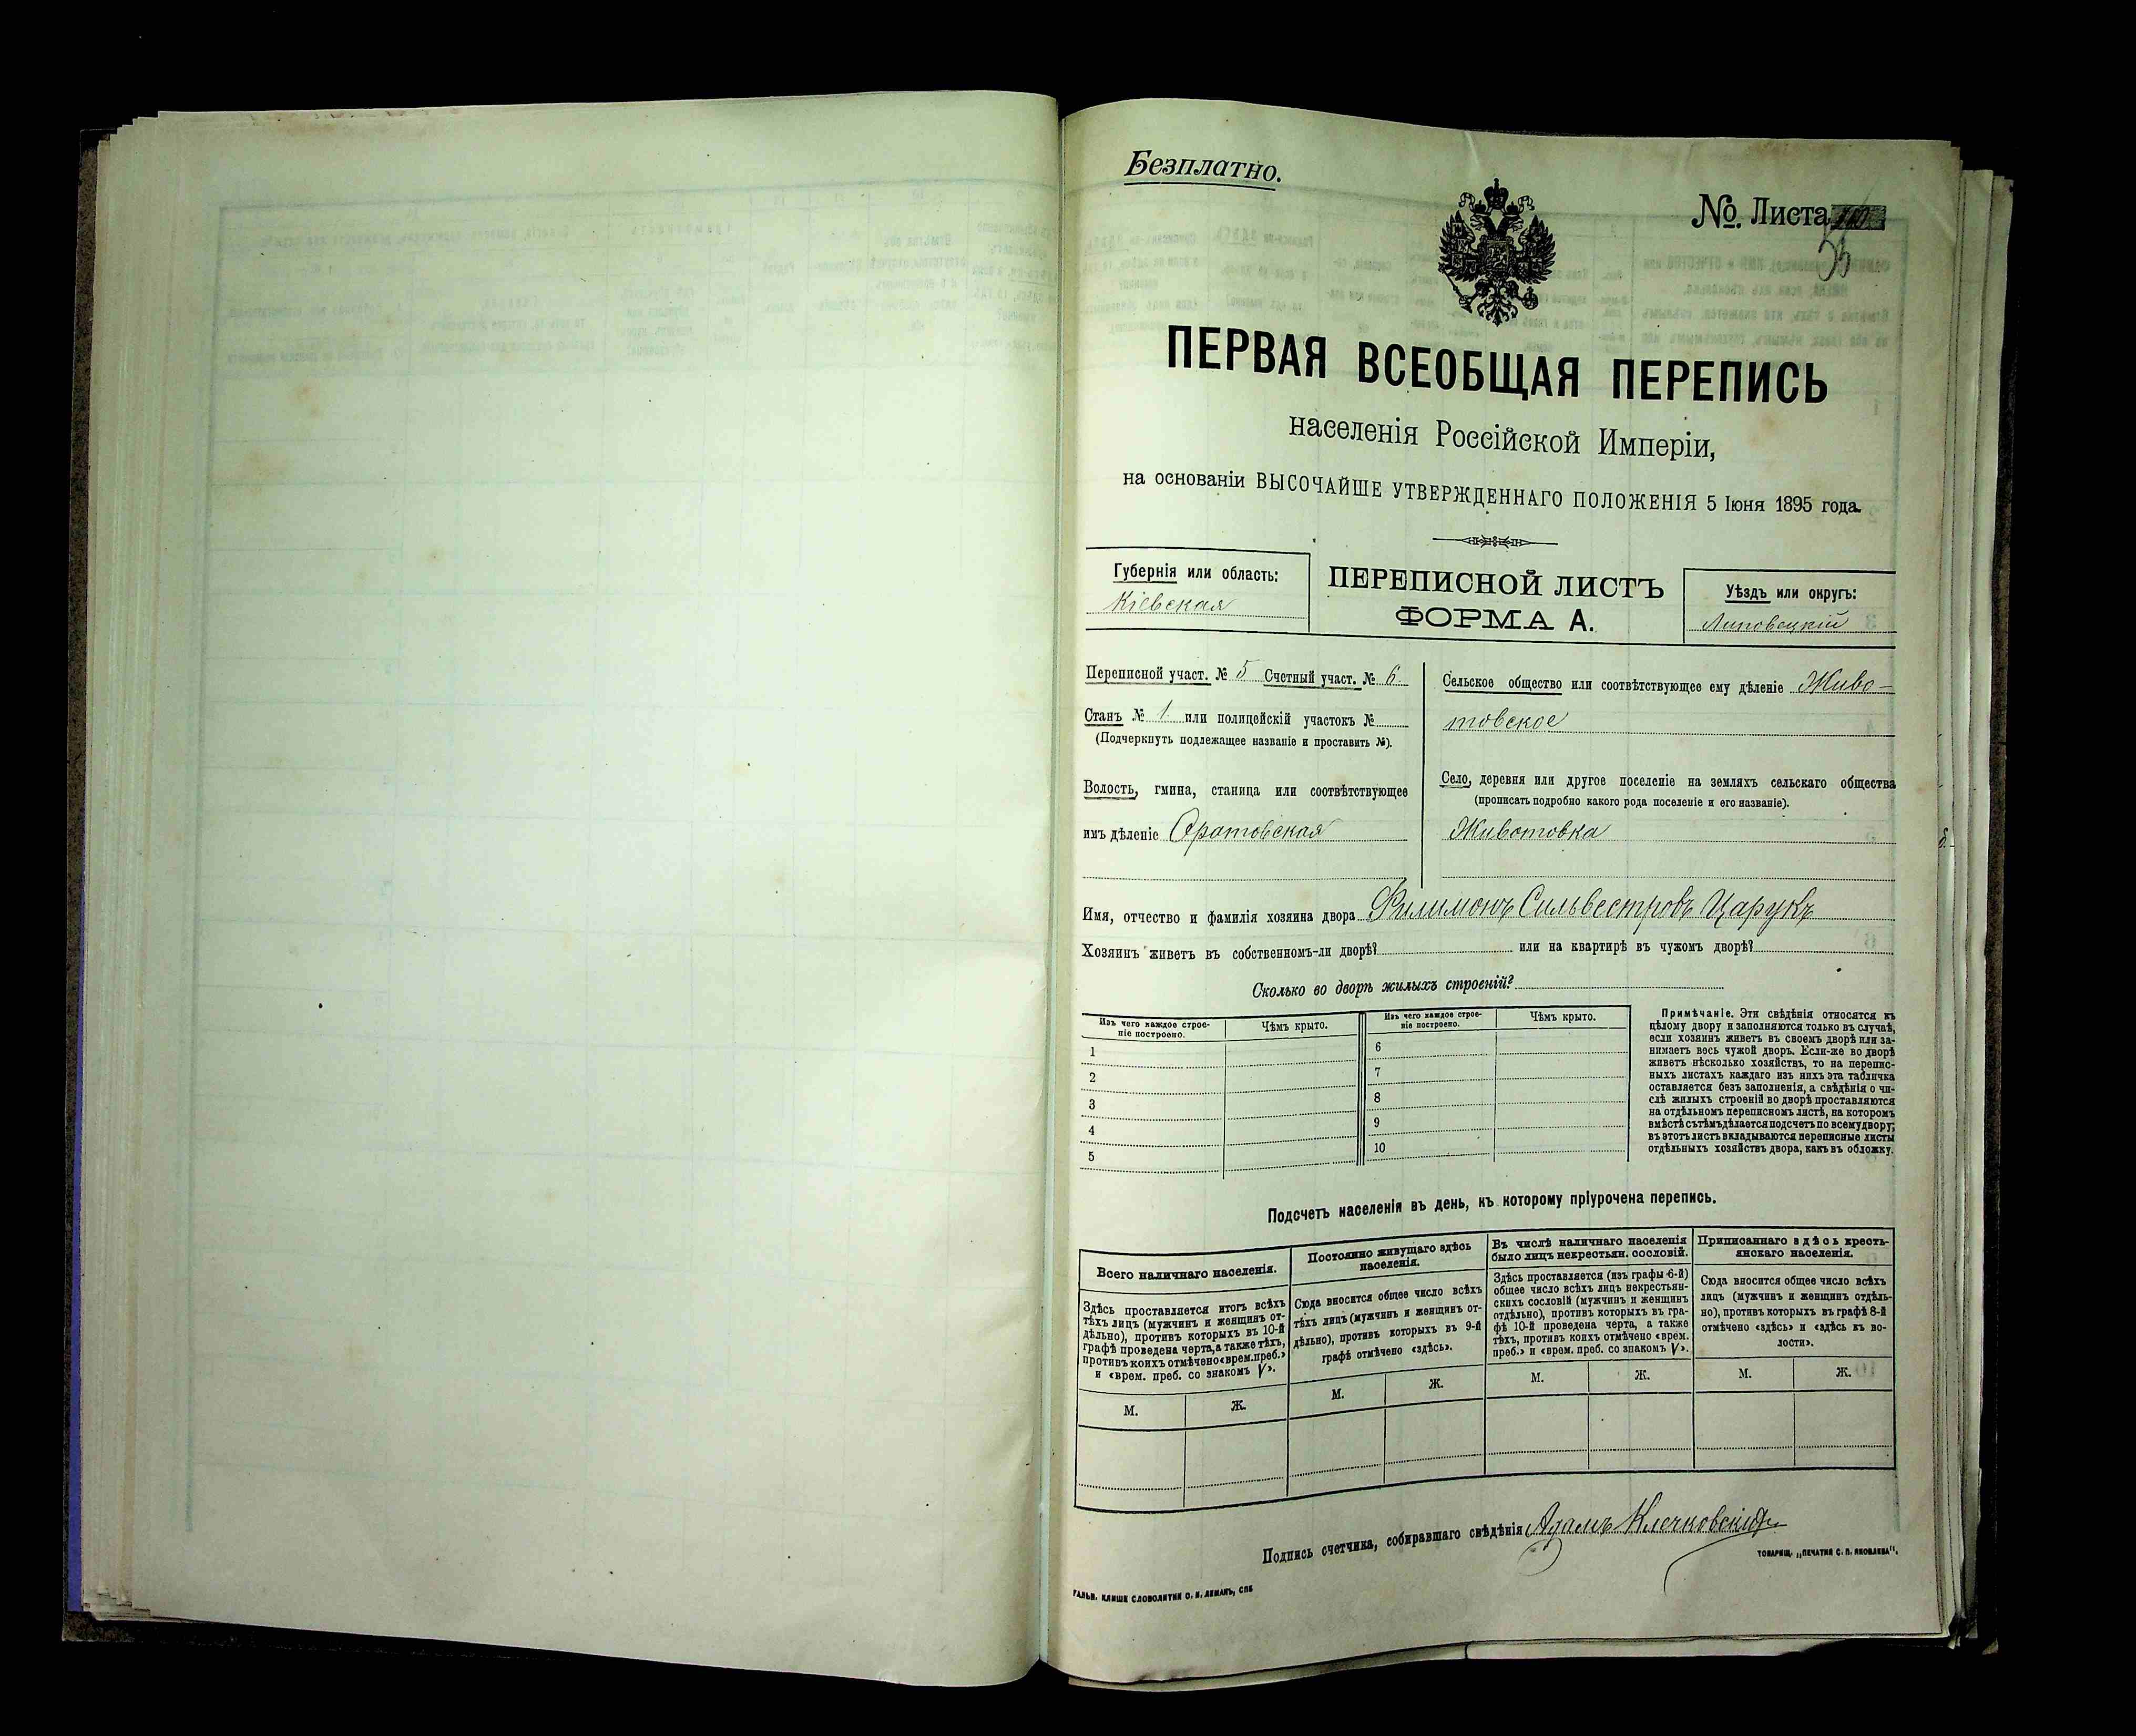 Безплатно.
№. Листа
55
ПЕРВАЯ ВСЕОБЩАЯ ПЕРЕПИСЬ
населенія Россійской Имперіи,
на основаніи ВЫСОЧАЙШЕ УТВЕРЖДЕННАГО ПОЛОЖЕНІЯ 5 Іюня 1895 года.
Губернія или область:
Кіевская
ПЕРЕПИСНОЙ ЛИСТЪ
ФОРМА А.
Уѣздъ или округъ:
Липовецкій
Переписной участ. № 5 Счетный участ. № 6.
Станъ № 1 или полицейскій участокъ №
(Подчеркнуть подлежащее названіе и проставить №).
Волость, гмина, станица или соотвѣтствующее
имъ дѣленіе Оратовская
Сельское общество или соотвѣтствующее ему дѣленіе Живо-
товское
Село, деревня или другое поселеніе на земляхъ сельскаго общества
(прописать подробно какого рода поселеніе и его названіе).
Животовка
Имя, отчество и фамилія хозяина двора Филимонъ Сильвестровъ Царукъ
Хозяинъ живетъ въ собственномъ-ли дворѣ? или на квартирѣ въ чужомъ дворѣ?
Сколько во дворѣ жилыхъ строеній?
Изъ чего каждое строе-
ніе построено.
Чѣмъ крыто.
1
2
3
4
5
Изъ чего каждое строе-
ніе построено.
Чѣмъ крыто.
6
7
8
9
10
Примѣчаніе. Эти свѣдѣнія относятся къ
цѣлому двору и заполняются только въ случаѣ,
если хозяинъ живетъ въ своемъ дворѣ или за-
нимаетъ весь чужой дворъ. Если-же во дворѣ
живетъ нѣсколько хозяйствъ, то на перепис-
ныхъ листахъ каждаго изъ нихъ эта табличка
оставляется безъ заполненія, а свѣдѣнія о чи-
слѣ жилыхъ строеній во дворѣ проставляются
на отдѣльномъ переписномъ листѣ, на которомъ
вмѣстѣ съ тѣмъ дѣлается подсчетъ по всему двору;
въ этотъ листъ вкладываются переписные листы
отдѣльныхъ хозяйствъ двора, какъ въ обложку.
Подсчетъ населенія въ день, къ которому пріурочена перепись.
Всего наличнаго населенія.
Здѣсь проставляется итогъ всѣхъ
тѣхъ лицъ (мужчинъ и женщинъ от-
дѣльно), противъ которыхъ въ 10-й
графѣ проведена черта, а также тѣхъ,
противъ коихъ отмѣчено «врем. преб.»
и «врем. преб. со знакомъ V».
М. Ж.
Постоянно живущаго здѣсь
населенія.
Сюда вносится общее число всѣхъ
тѣхъ лицъ (мужчинъ и женщинъ от-
дѣльно), противъ которыхъ въ 9-й
графѣ отмѣчено «здѣсь».
М. Ж.
Въ числѣ наличнаго населенія
было лицъ некрестьян. сословій.
Здѣсь проставляется (изъ графы 6-й)
общее число всѣхъ лицъ некрестьян-
скихъ сословій (мужчинъ и женщинъ
отдѣльно), противъ которыхъ въ гра-
фѣ 10-й проведена черта, а также
тѣхъ, противъ коихъ отмѣчено «врем.
преб.» и «врем. преб. со знакомъ V».
М. Ж.
Приписаннаго здѣсь кресть-
янскаго населенія.
Сюда вносится общее число всѣхъ
лицъ (мужчинъ и женщинъ отдѣль-
но), противъ которыхъ въ графѣ 8-й
отмѣчено «здѣсь» и «здѣсь къ во-
лости».
М. Ж.
Подпись счетчика, собиравшаго свѣдѣнія Адамъ Клечковскій
ТОВАРИЩ. „ПЕЧАТНЯ С. П. ЯКОВЛЕВА".
ГАЛЬВ. КЛИШЕ СЛОВОЛИТНИ О. И. ЛЕМАНЪ, СПБ